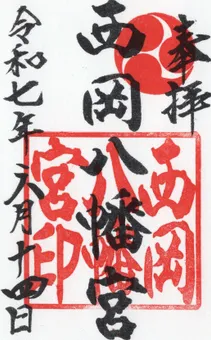 奉拝
西岡八幡宮
西岡
八幡
宮印
令和七年六月十四日